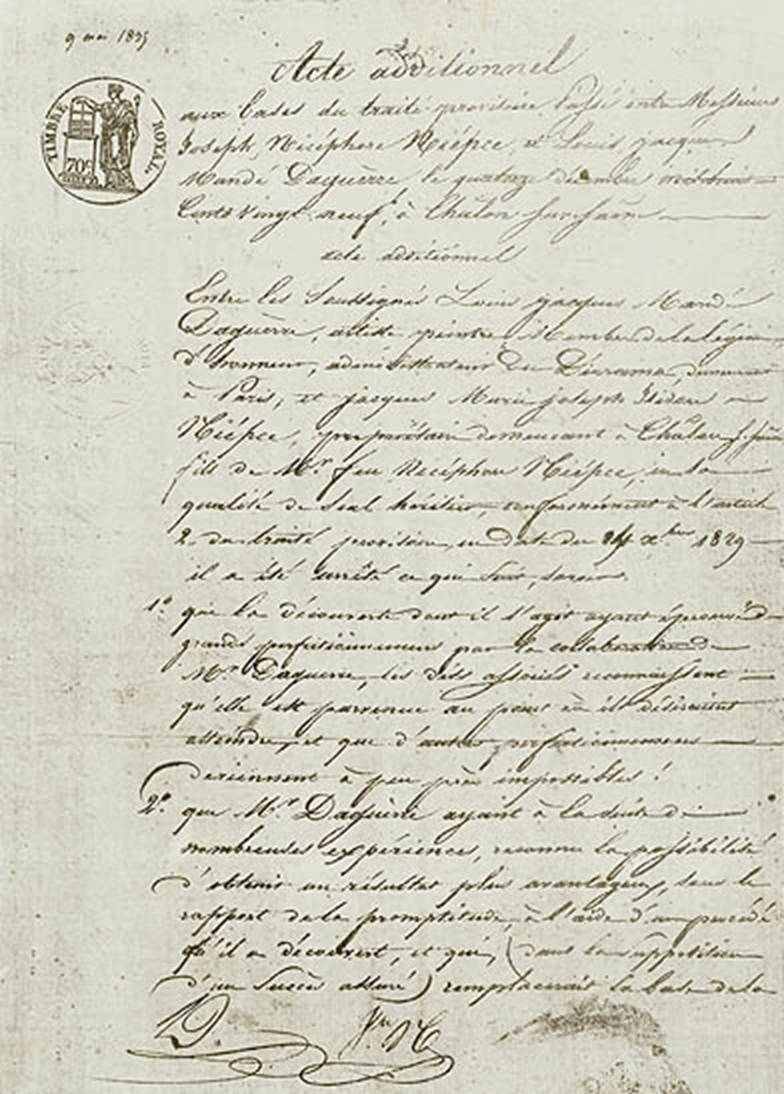 9 mai 1835
Acte additionnel
TIMBRE ROYAL
70c
aux bases du traité provisoire passé entre Messieurs
Joseph, Nicéphore Niépce, et Louis, jacques
Mandé Daguèrre, le quatorze décembre mil huit
Cents vingt neuf, à Châlon sur saône
acte additionnel
Entre les Soussignés Louis jacques Mandé
Daguèrre, artiste peintre Membre de la légion
d'honneur, administrateur du Diorama, demeurant
à Paris, et jacques Marie joseph Isidore
Niépce, propriétaire demeurant à Châlon s. saône
fils de Mr. feu Nicéphore Niépce, en sa
qualité de seul héritier, conformément à l'article
2. du traité provisoire, en date du 14 xbre 1829
il a été arrêté ce qui suit, savoir
1º que la découverte dont il s'agit ayant éprouvé de
grands perfectionnemens par la collaboration de
Mr Daguerre, les dits associés reconnaissent
qu'elle est parvenue au point où ils désiraient
atteindre, et que d'autres perfectionnemens
deviennent à peu près impossibles!
2º. que Mr Daguèrre ayant à la suite de
nombreuses expérience, reconnu la possibilité
d'obtenir un résultat plus avantageux, sous le
rapport de la promptitude, à l'aide d'un procédé
qu'il a découvert, et qui, (dans la supposition
d'un succès assuré) remplacerait la base de la
D. N